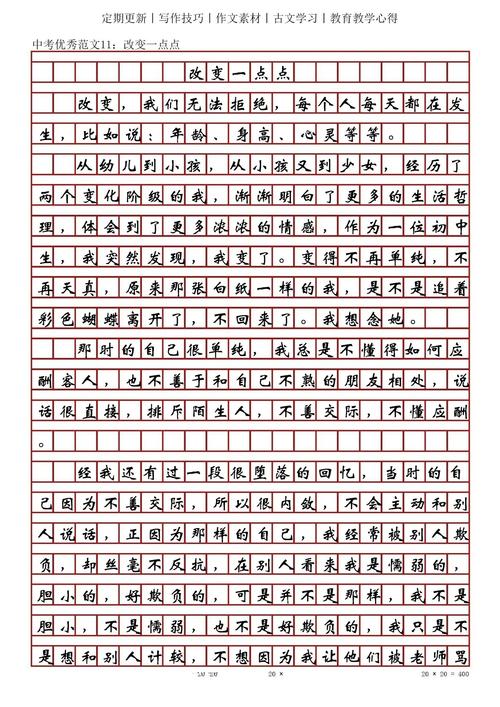 定期更新丨写作技巧丨作文素材丨古文学习丨教育教学心得
中考优秀范文11：改变一点点
改变一点点
改变，我们无法拒绝，每个人每天都在发
生，比如说：年龄、身高、心灵等等。
从幼儿到小孩，从小孩又到少女，经历了
两个变化阶级的我，渐渐明白了更多的生活哲
理，体会到了更多浓浓的情感，作为一位初中
生，我突然发现，我变了。变得不再单纯，不
再天真，原来那张白纸一样的我，是不是追着
彩色蝴蝶离开了，不回来了。我想念她。
那时的自己很单纯，我总是不懂得如何应
酬客人，也不善于和自己不熟的朋友相处，说
话很直接，排斥陌生人，不善交际，不懂应酬
。
经我还有过一段很堕落的回忆，当时的自
己因为不善交际，所以很内敛，不会主动和别
人说话，正因为那样的自己，我经常被别人欺
负，却丝毫不反抗，在别人看来我是懦弱的，
胆小的，好欺负的，可是并不是那样，我不是
胆小，不是懦弱，也不是好欺负的，我只是不
是想和别人计较，不想因为我让他们被老师骂
20 × 20 = 400